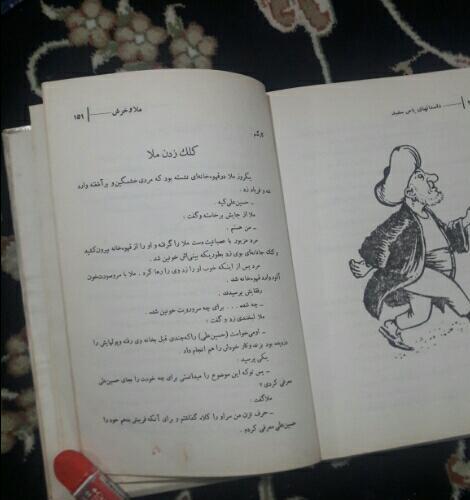 ملا و خرش ۱۵۹
کلک زدن ملا
یکروز ملا در قهوه‌خانه‌ای نشسته بود که مردی خشمگین و برآشفته وارد
شد و فریاد زد .
ـ حسین‌علی کیه .
ملا از جایش برخاسته و گفت :
ـ من هستم .
مرد مزبور با عصبانیت دست ملا را گرفته و او را از قهوه‌خانه بیرون کشید
و کتک جانانه‌ای بوی زد بطوریکه بینی‌اش خونین شد .
مرد پس از اینکه خوب او را زد وی را رها کرد . ملا با سر و صورت خون
آلود وارد قهوه‌خانه شد .
رفقایش پرسیدند .
ـ چه شده . . . . برای چه سروروت خونین شد .
ملا لبخندی زد و گفت :
ـ او می‌خواست (حسین‌علی) را که چندی قبل بخانه وی رفته و پولهایش را
دزدیده بود بزند و کار خودش را هم انجام داد
یکی پرسید .
ـ پس تو که این موضوع را میدانستی برای چه خودت را بجای حسین‌علی
معرفی کردی ؟
ملا گفت .
ـ حرف نزن من سر او را کلاه گذاشتم و برای آنکه فریبش بدهم خود را
حسین‌علی معرفی کردم .
داستانهای